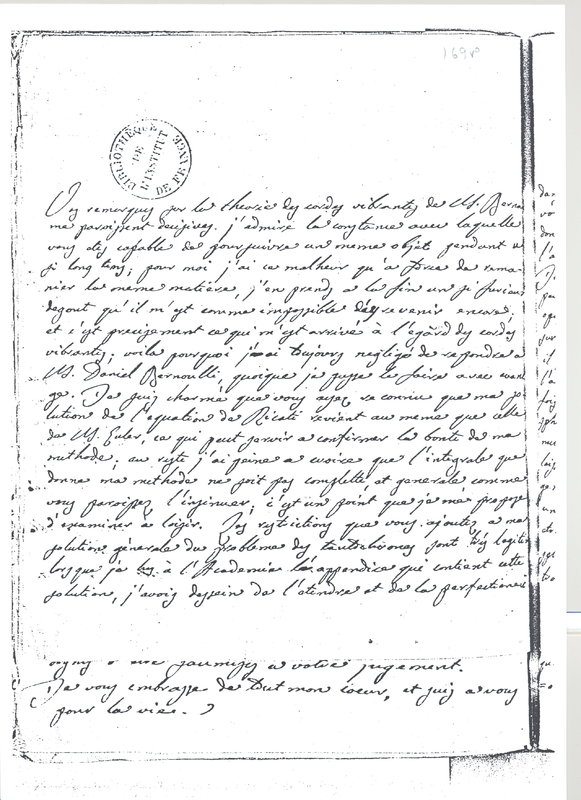 169 v°
BIBLIOTHÈQUE DE L'INSTITUT DE FRANCE
Vos remarques sur la theorie des cordes vibrantes de M. Bernou
me paroissent decisives. j'admire la constance avec laquelle
vous etes capable de poursuivre un meme objet pendant u
si long tems; pour moi j'ai ce malheur qu'à force de rema-
nier la meme matiere, j'en prends à la fin un si furieux
degout qu'il m'est comme impossible de revenir encore;
et c'est precisement ce qui m'est arrivé à l'égard des cordes
vibrantes; voila pourquoi j'ai toujours negligé de repondre a
M. Daniel Bernoulli, quoique je pusse le faire avec avan
ge. Je suis charmé que vous ayez reconnu que ma so
lution de l'equation de Ricati revient au meme que celle
de M. Euler, ce qui peut servir a confirmer la bonté de ma
methode; au reste j'ai peine a croire que l'integrale que
donne ma methode ne soit pas complette, et generale comme
vous paroissez l'insinuer; c'est un point que je me propose
d'examiner a loisir. Les restrictions que vous ajoutez a ma
solution générale du probleme des tautochrones sont très legiti
lorsque j'ai lu à l'Academie l'appendice qui contient cette
solution, j'avois dessein de l'etendre et de la perfectionner
soumises a votre jugement.
Je vous embrasse de tout mon coeur, et suis a vous
pour la vie.